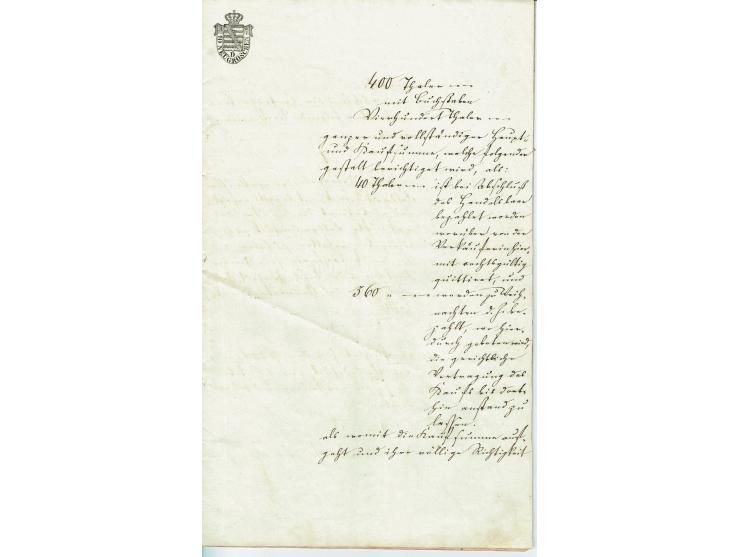 400 Thaler
mit Buchstaben
Vierhundert Thaler
ganzer und vollständiger Haupt-
und Kaufsumme, welche folgender
gestalt berichtiget wird, als:
40 Thaler ist bei Abschluß
des Handels baar
bezahlet worden
worüber von der
Verkäuferin hier-
mit rechtsgültig
quittiret, und
360 " werden zu Weih-
nachten d. J. be-
zahlt, wo hier-
durch gebeten wird,
die gerichtliche
Vertragung des
Kaufs bis dort-
hin anstand zu
lassen.
als womit die Kaufsumme auf-
geht und ihre völlige Richtigkeit